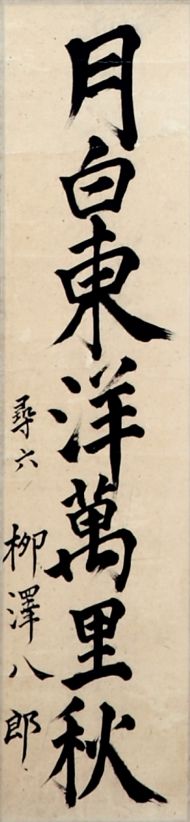 月白東洋萬里秋
尋六 柳澤八郎